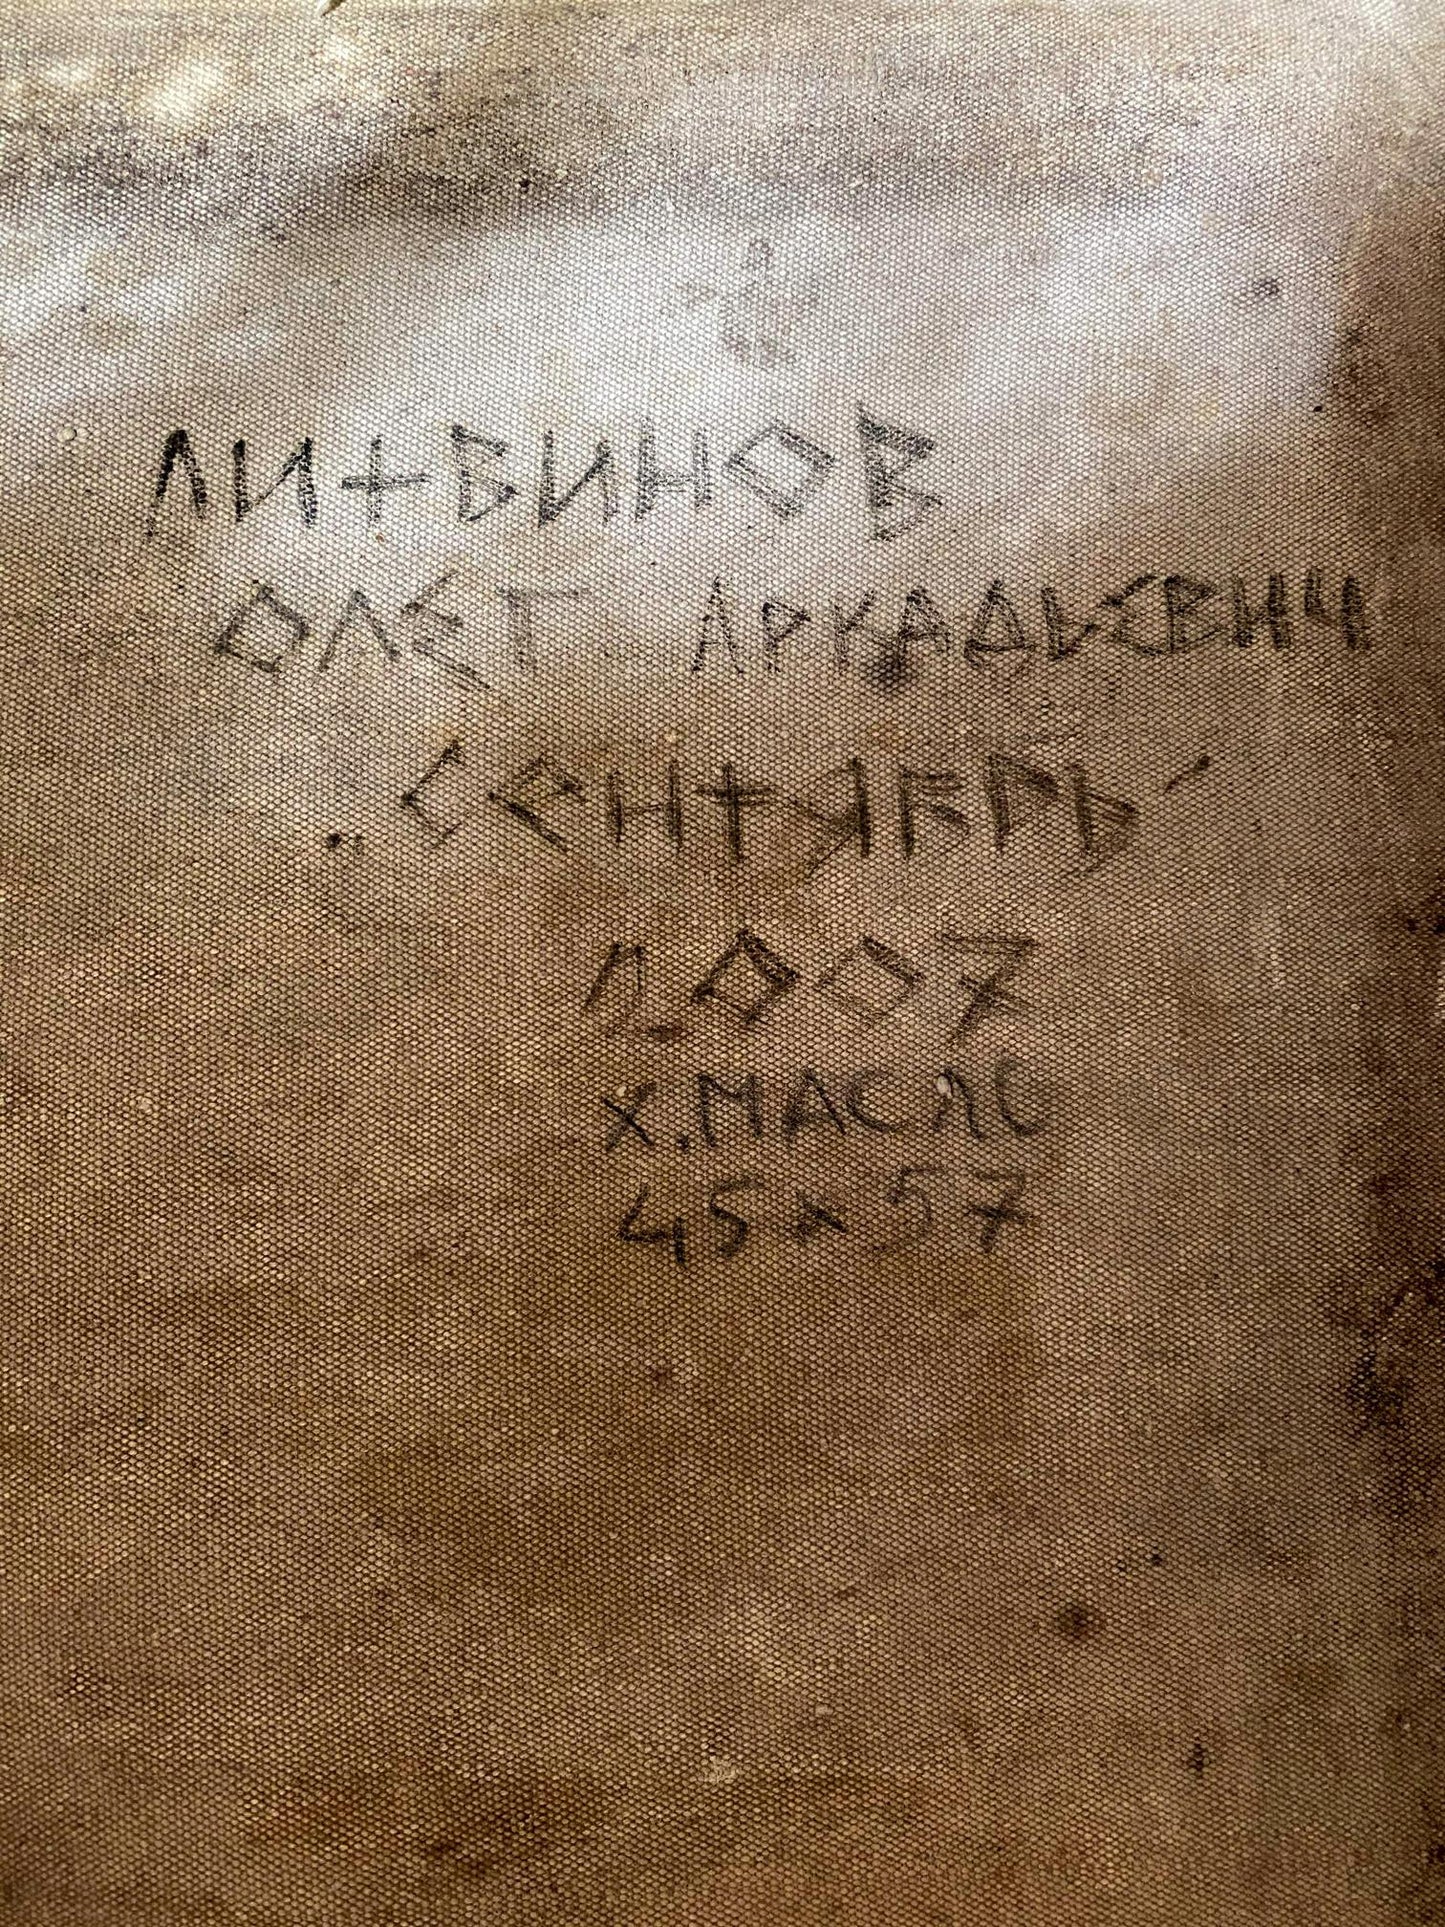 ЛИТВИНОВ
ОЛЕГ АРКАДЬЕВИЧ
"СЕНТЯБРЬ"
2007
Х.МАСЛО
45x57